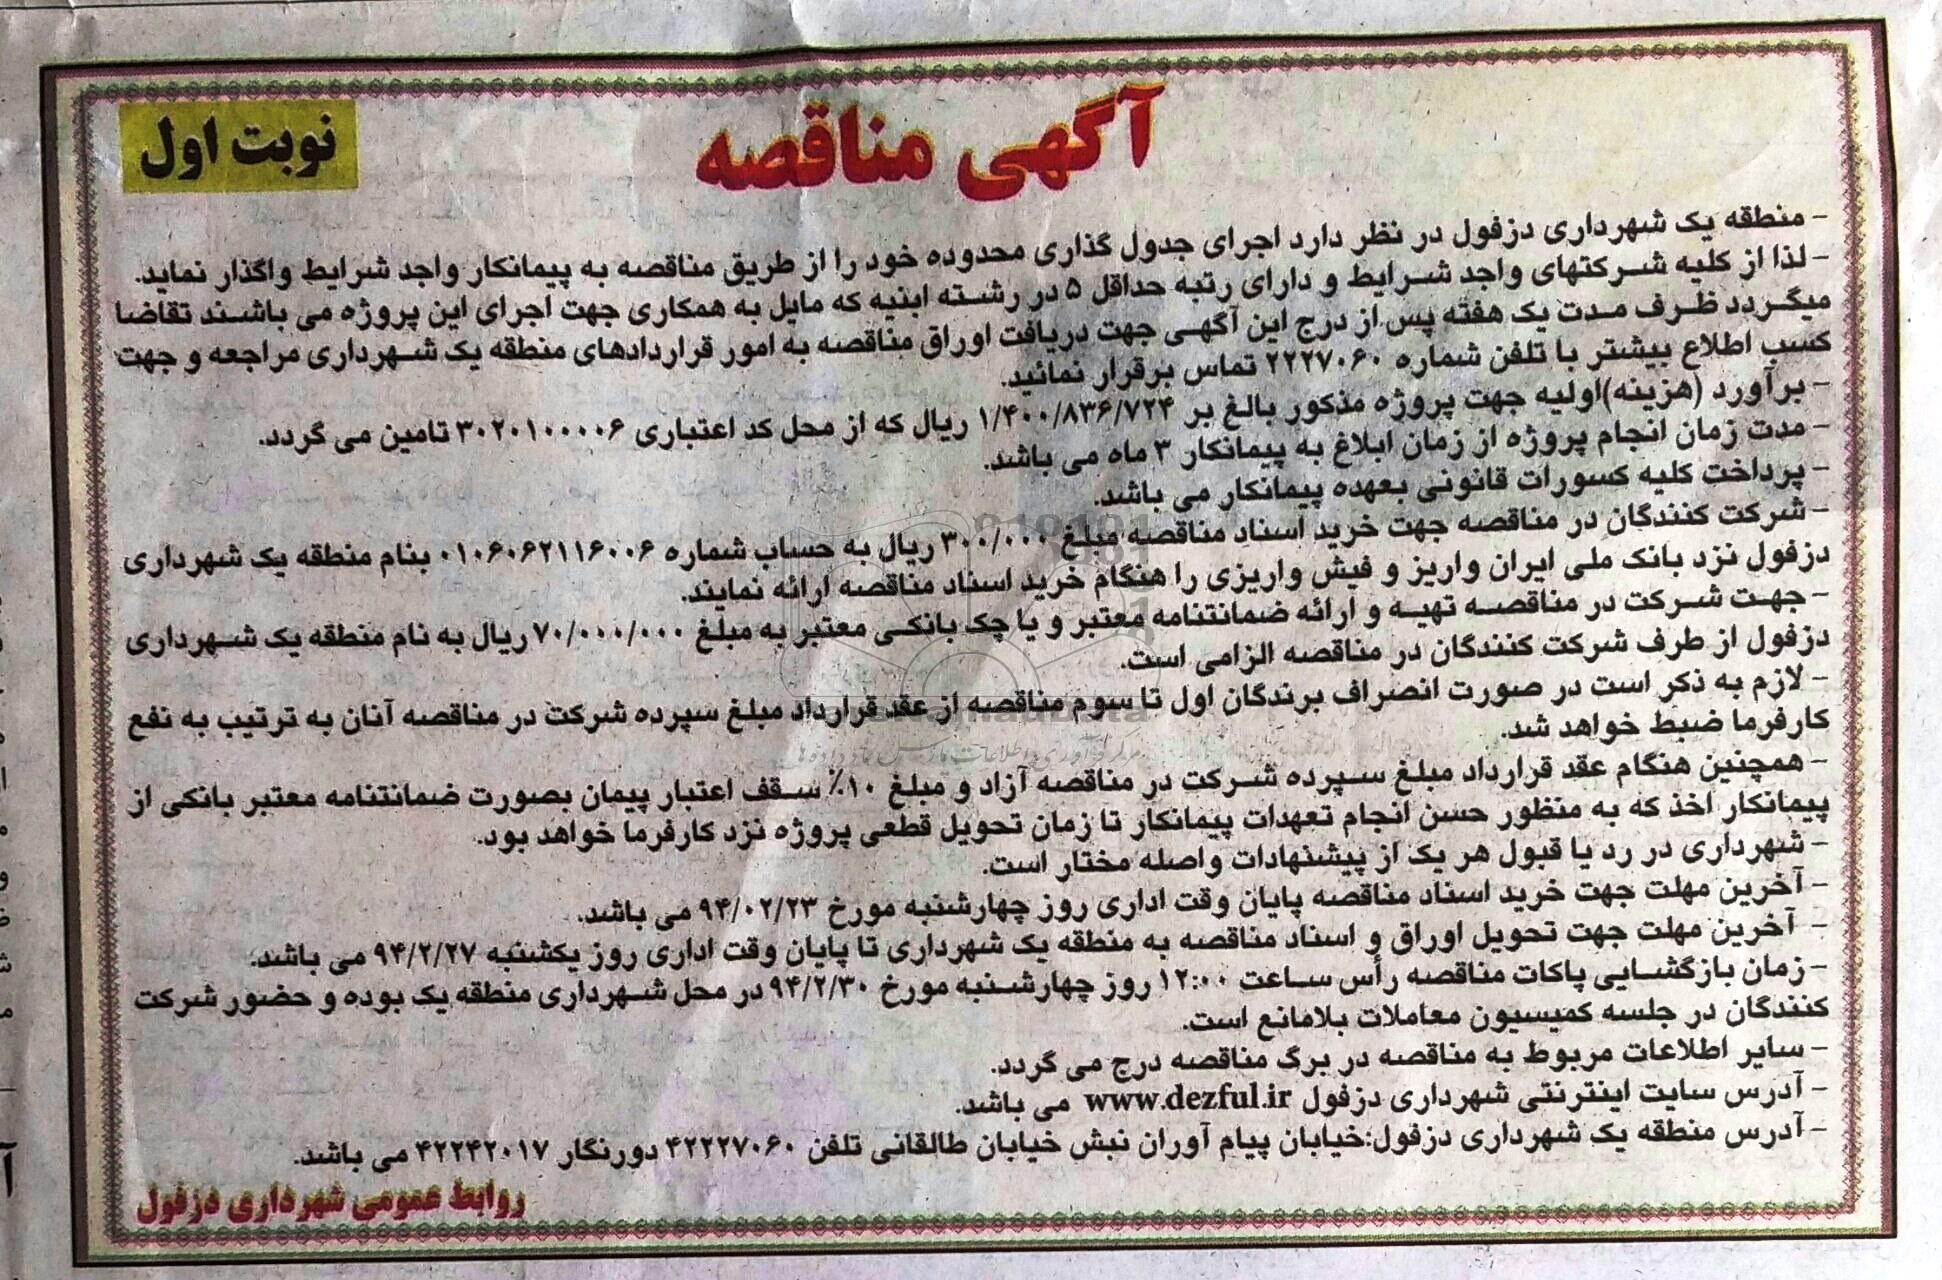 آگهی مناقصه
نوبت اول
- منطقه یک شهرداری دزفول در نظر دارد اجرای جدول گذاری محدوده خود را از طریق مناقصه به پیمانکار واجد شرایط واگذار نماید.
- لذا از کلیه شرکتهای واجد شرایط و دارای رتبه حداقل ۵ در رشته ابنیه که مایل به همکاری جهت اجرای این پروژه می باشند تقاضا
میگردد ظرف مدت یک هفته پس از درج این آگهی جهت دریافت اوراق مناقصه به امور قراردادهای منطقه یک شهرداری مراجعه و جهت
کسب اطلاع بیشتر با تلفن شماره ۲۲۲۷۰۶۰ تماس برقرار نمائید.
- برآورد (هزینه)اولیه جهت پروژه مذکور بالغ بر ۱/۴۰۰/۸۳۶/۷۲۴ ریال که از محل کد اعتباری ۳۰۲۰۱۰۰۰۰۶ تامین می گردد.
- مدت زمان انجام پروژه از زمان ابلاغ به پیمانکار ۳ ماه می باشد.
- پرداخت کلیه کسورات قانونی بعهده پیمانکار می باشد.
- شرکت کنندگان در مناقصه جهت خرید اسناد مناقصه مبلغ ۳۰۰/۰۰۰ ریال به حساب شماره ۰۱۰۶۰۶۲۱۱۶۰۰۶ بنام منطقه یک شهرداری
دزفول نزد بانک ملی ایران واریز و فیش واریزی را هنگام خرید اسناد مناقصه ارائه نمایند.
- جهت شرکت در مناقصه تهیه و ارائه ضمانتنامه معتبر و یا چک بانکی معتبر به مبلغ ۷۰/۰۰۰/۰۰۰ ریال به نام منطقه یک شهرداری
دزفول از طرف شرکت کنندگان در مناقصه الزامی است.
- لازم به ذکر است در صورت انصراف برندگان اول تا سوم مناقصه از عقد قرارداد مبلغ سپرده شرکت در مناقصه آنان به ترتیب به نفع
کارفرما ضبط خواهد شد.
- همچنین هنگام عقد قرارداد مبلغ سپرده شرکت در مناقصه آزاد و مبلغ ۱۰٪ سقف اعتبار پیمان بصورت ضمانتنامه معتبر بانکی از
پیمانکار اخذ که به منظور حسن انجام تعهدات پیمانکار تا زمان تحویل قطعی پروژه نزد کارفرما خواهد بود.
- شهرداری در رد یا قبول هر یک از پیشنهادات واصله مختار است.
- آخرین مهلت جهت خرید اسناد مناقصه پایان وقت اداری روز چهارشنبه مورخ ۹۴/۰۲/۲۳ می باشد.
- آخرین مهلت جهت تحویل اوراق و اسناد مناقصه به منطقه یک شهرداری تا پایان وقت اداری روز یکشنبه ۹۴/۲/۲۷ می باشد.
- زمان بازگشایی پاکات مناقصه رأس ساعت ۱۲:۰۰ روز چهارشنبه مورخ ۹۴/۲/۳۰ در محل شهرداری منطقه یک بوده و حضور شرکت
کنندگان در جلسه کمیسیون معاملات بلامانع است.
- سایر اطلاعات مربوط به مناقصه در برگ مناقصه درج می گردد.
- آدرس سایت اینترنتی شهرداری دزفول www.dezful.ir می باشد.
- آدرس منطقه یک شهرداری دزفول:خیابان پیام آوران نبش خیابان طالقانی تلفن ۴۲۲۲۷۰۶۰ دورنگار ۴۲۲۴۲۰۱۷ می باشد.
روابط عمومی شهرداری دزفول